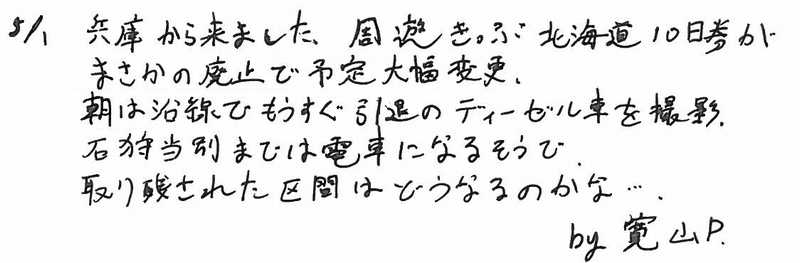 5/1 兵庫から来ました、周遊きっぷ北海道10日券が
まさかの廃止で予定大幅変更、
朝は沿線でもうすぐ引退のディーゼル車を撮影、
石狩当別までは電車になるそうで、
取り残された区間はどうなるのかな…、
by 寛山P.